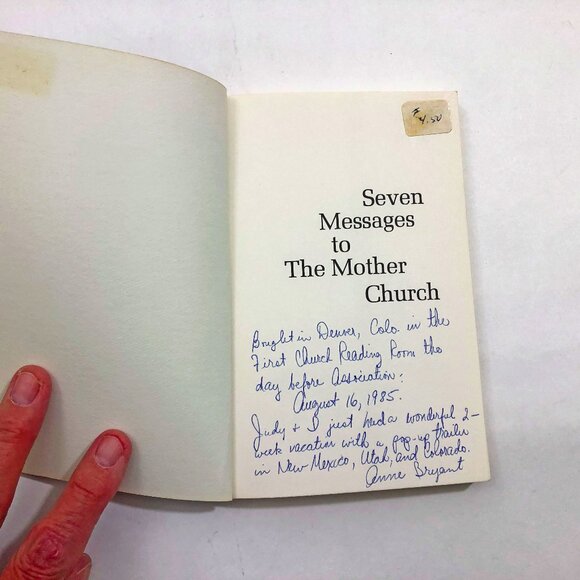 $4.50
Seven
Messages
to
The Mother
Church
Bought in Denver, Colo. in the
First Church Reading Room the
day before Association:
August 16, 1985.
Judy & I just had a wonderful 2-
week vacation with a pop-up trailer
in New Mexico, Utah, and Colorado.
Anne Bryant